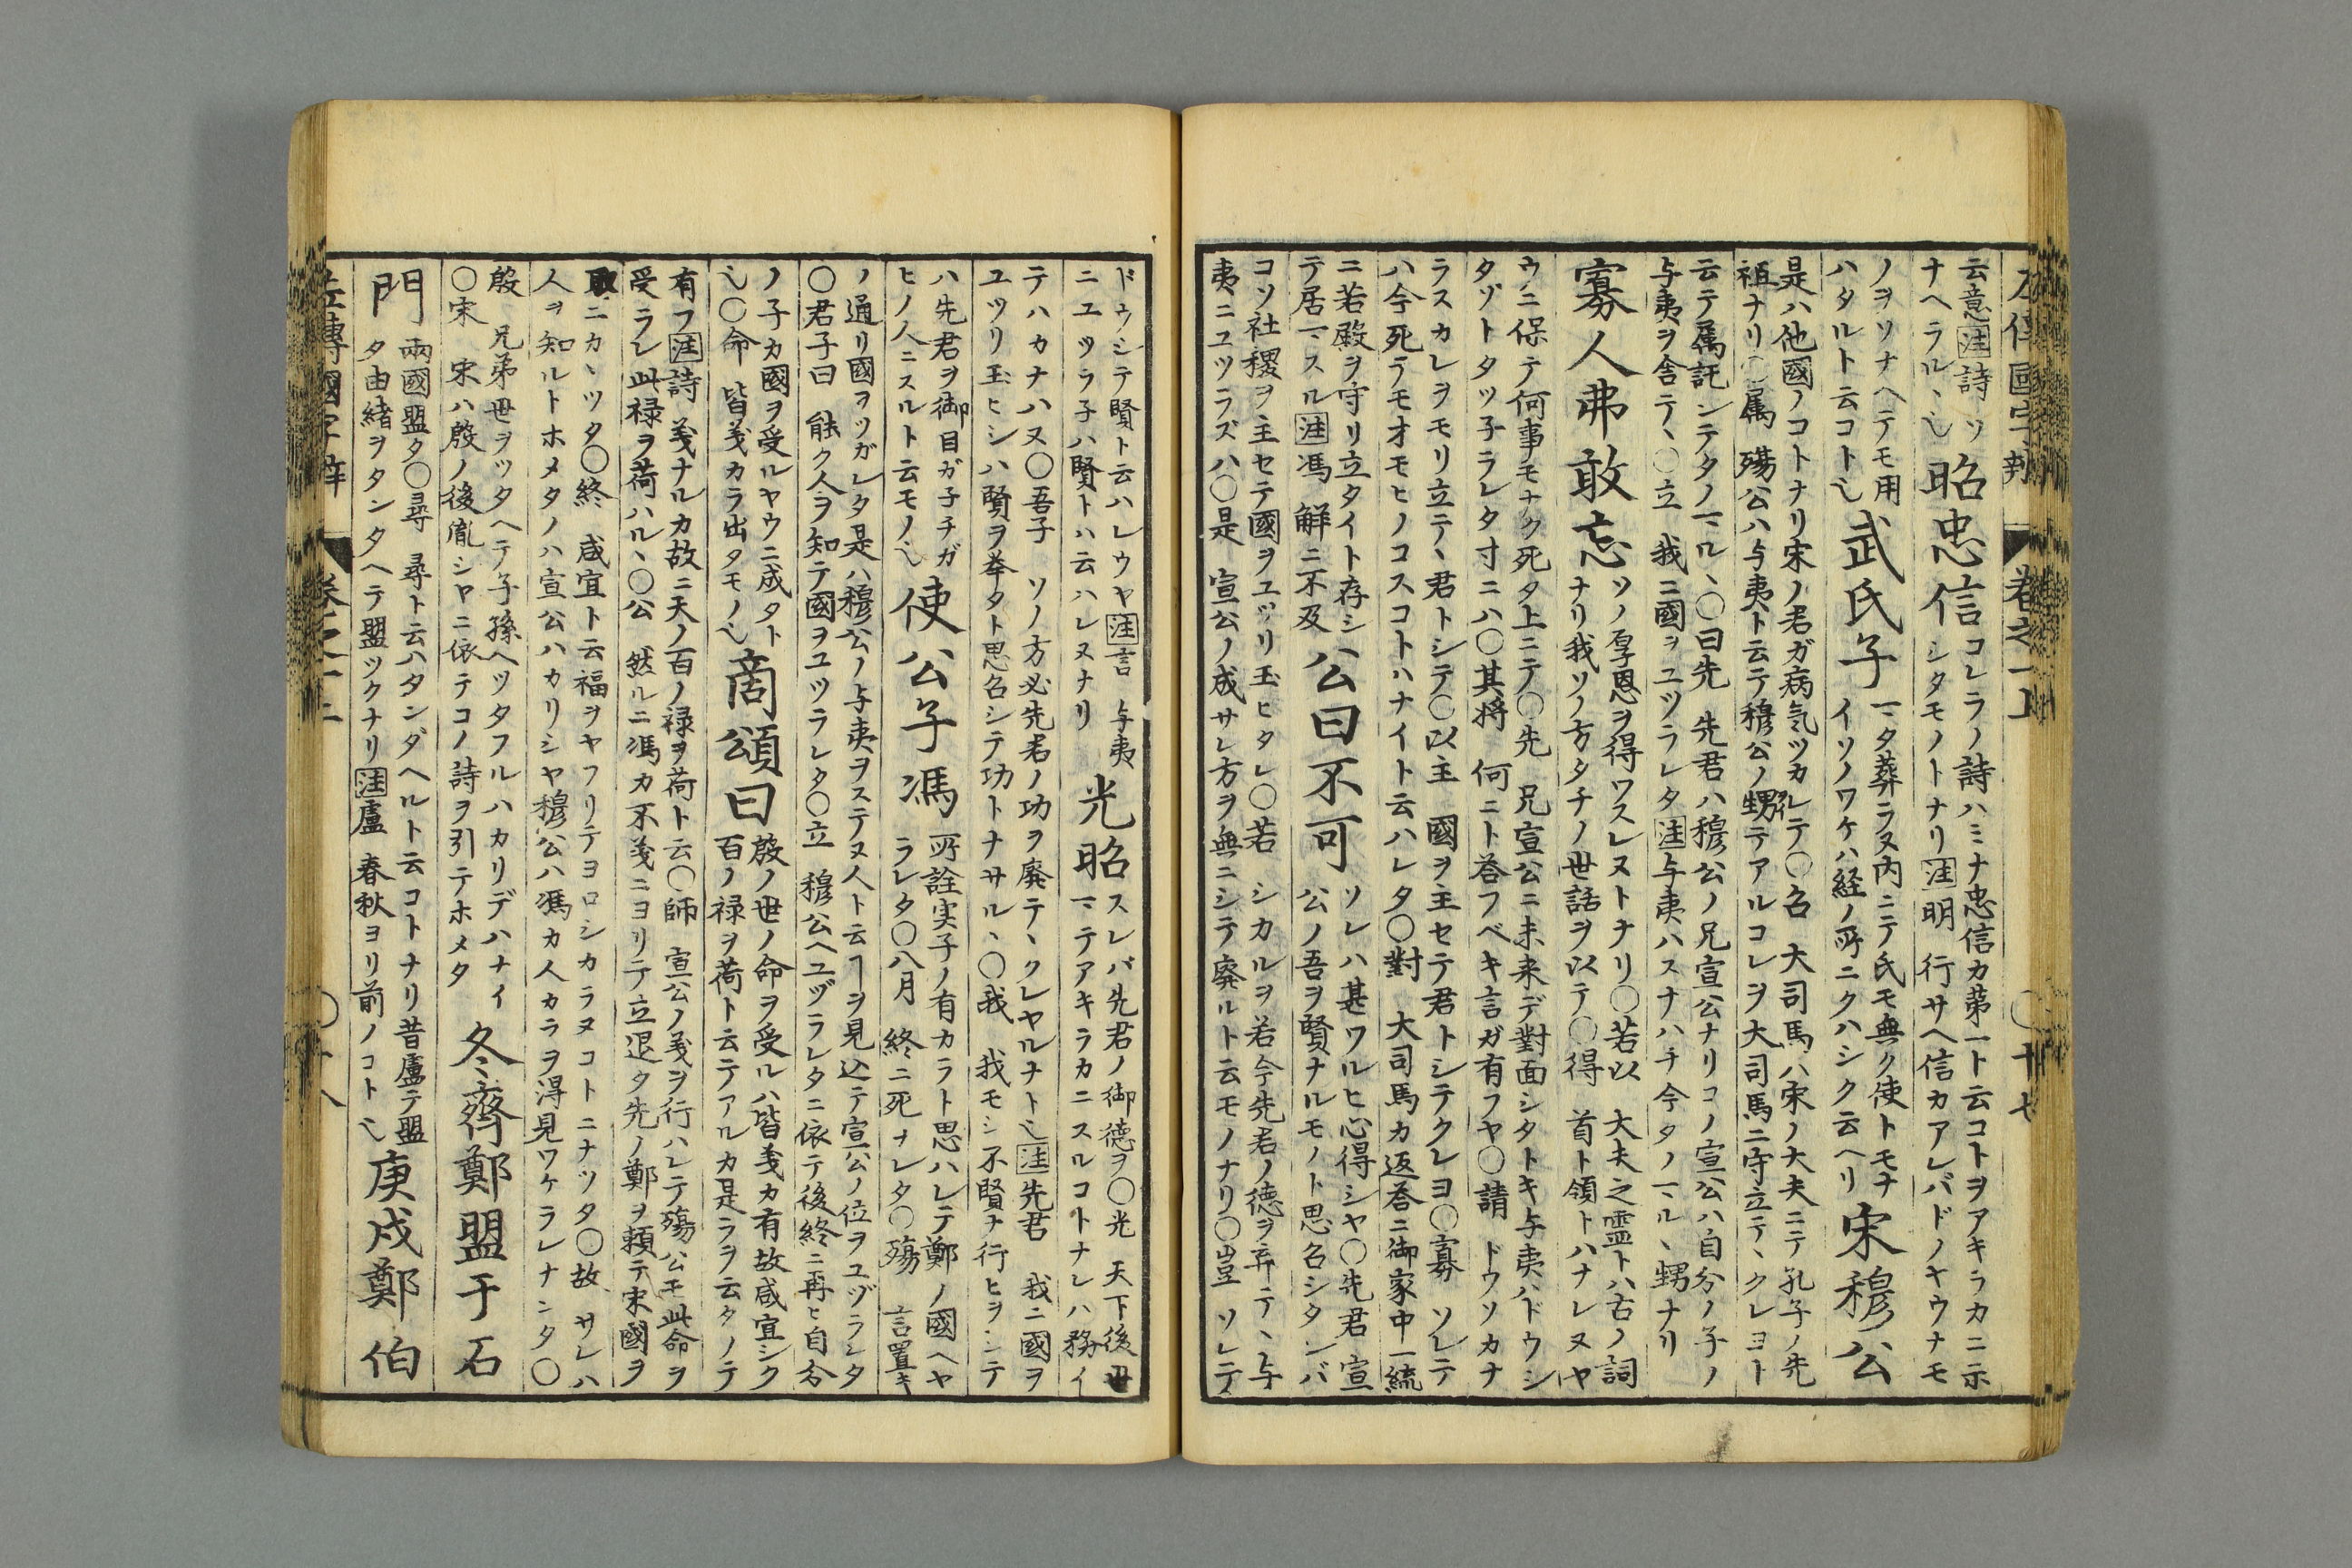 左傳國字辨 卷之一上 〇十七
云意注詩 ソ
ナヘラル、也
昭忠信
コレラノ詩ハミナ忠信カ第一ト云コトヲアキラカニ示
シタモノトナリ注明 行サヘ信カアレバドノヤウナモ
ノヲソナヘテモ用
ハタルト云コト也
武氏子
マタ葬ラヌ内ニテ氏モ無ク使トモナ
イソノワケハ経ノ所ニクハシク云ヘリ
宋穆公
是ハ他國ノコトナリ宋ノ君ガ病気ツカレテ〇召 大司馬ハ宋ノ大夫ニテ孔子ノ先
祖ナリ〇属 殤公ハ与夷ト云テ穆公ノ甥テアルコレヲ大司馬ニ守立テ、クレヨト
云テ属託シテタノマル、〇曰先 先君ハ穆公ノ兄宣公ナリコノ宣公ハ自分ノ子ノ
与夷ヲ舎テ、〇立 我ニ國ヲユツラレタ注与夷ハスナハチ今タノマル、甥ナリ
寡人弗敢忘
ソノ厚恩ヲ得ワスレヌトナリ〇若以 大夫之霊トハ古ノ詞
ナリ我ソノ方タチノ世話ヲ以テ〇得 首ト領トハナレヌヤ
ウニ保テ何事モナク死タ上ニテ〇先 兄宣公ニ未来デ對面シタトキ与夷ハドウシ
タゾトタツ子ラレタ寸ニハ〇其将 何ニト荅フベキ言ガ有フヤ〇請 ドウソカナ
ラスカレヲモリ立テ、君トシテ〇以主 國ヲ主セテ君トシテクレヨ〇寡 ソレテ
ハ今死テモオモヒノコスコトハナイト云ハレタ〇對 大司馬カ返荅ニ御家中一統
ニ若殿ヲ守リ立タイト存シ
テ居マスル注馮 解ニ不及
公曰不可
ソレハ甚ワルヒ心得シヤ〇先君 宣
公ノ吾ヲ賢ナルモノト思召シタンバ
コソ社稷ヲ主セテ國ヲユツリ玉ヒタレ〇若 シカルヲ若今先君ノ徳ヲ弃テ、与
夷ニユツラズハ〇是 宣公ノ成サレ方ヲ無ニシテ廃ルト云モノナリ〇豈 ソレテ
ドウシテ賢ト云ハレウヤ注言 与夷
ニユツラ子ハ賢トハ云ハレヌナリ
光昭
スレバ先君ノ御徳ヲ〇光 天下後世
マテアキラカニスルコトナレハ務イ
テハカナハヌ〇吾子 ソノ方必先君ノ功ヲ廃テ、クレヤルナト也注先君 我ニ國ヲ
ユツリ玉ヒシハ賢ヲ挙タト思召シテ功トナサル、〇我 我モシ不賢ナ行ヒヲシテ
ハ先君ヲ御目ガ子チガ
ヒノ人ニスルト云モノ也
使公子馮
所詮実子ノ有カラト思ハレテ鄭ノ國ヘヤ
ラレタ〇八月 終ニ死ナレタ〇殤 言置キ
ノ通リ國ヲツガレタ是ハ穆公ノ与夷ヲステヌ人ト云ヿヲ見込テ宣公ノ位ヲユヅラレタ
〇君子曰 能ク人ヲ知テ國ヲユツラレタ〇立 穆公ヘユヅラレタニ依テ後終ニ再ヒ自分
ノ子カ國ヲ受ルヤウニ成タト
也〇命 皆義カラ出タモノ也
商頌曰
殷ノ世ノ命ヲ受ルハ皆義カ有故咸宜シク
百ノ禄ヲ荷ト云テアルカ是ラヲ云タノテ
有フ注詩 義ナルカ故ニ天ノ百ノ禄ヲ荷ト云〇師 宣公ノ義ヲ行ハレテ殤公モ此命ヲ
受ラレ此禄ヲ荷ハル、〇公 然ルニ馮カ不義ニヨリテ立退タ先ノ鄭ヲ頼テ宋國ヲ
取ニカヽツタ〇終 咸宜ト云福ヲヤフリテヨロシカラヌコトニナツタ〇故 サレハ
人ヲ知ルトホメタノハ宣公ハカリシヤ穆公ハ馮カ人カラヲ得見ワケラレナンタ〇
殷 兄弟世ヲツタヘテ子孫ヘツタフルハカリデハナイ
〇宋 宋ハ殷ノ後胤シヤニ依テコノ詩ヲ引テホメタ
冬齊鄭盟于石
門
兩國盟タ〇尋 尋ト云ハタンダヘルト云コトナリ昔盧テ盟
タ由緒ヲタンタヘテ盟ツクナリ注盧 春秋ヨリ前ノコト也
庚戌鄭伯
左傳國字辨 卷之一上 〇十八